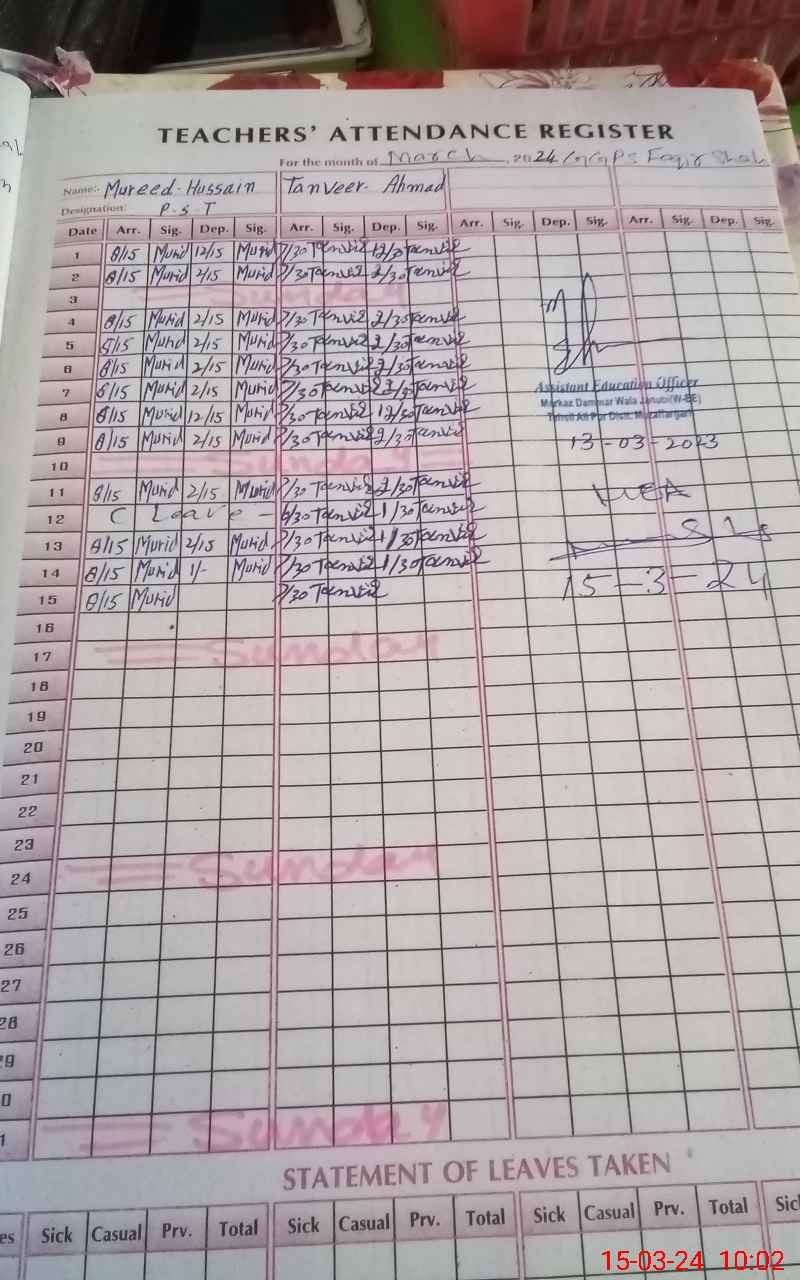 TEACHERS' ATTENDANCE REGISTER
For the month of March, 2024 / GGPS Faqir Shah
Name:- Mureed Hussain Tanveer Ahmad
Designation: P.S.T
Date Arr. Sig. Dep. Sig. Arr. Sig. Dep. Sig. Arr. Sig. Dep. Sig. Arr. Sig. Dep. Sig.
1 8/15 Murid 12/15 Murid 7/30 Tanveer 12/30 Tanveer
2 8/15 Murid 2/15 Murid 7/30 Tanveer 2/30 Tanveer
3 Sunday
4 8/15 Murid 2/15 Murid 7/30 Tanveer 2/30 Tanveer
5 8/15 Murid 2/15 Murid 7/30 Tanveer 2/30 Tanveer
6 8/15 Murid 2/15 Murid 7/30 Tanveer 2/30 Tanveer
7 8/15 Murid 2/15 Murid 7/30 Tanveer 2/30 Tanveer
Assistant Education Officer
Markaz Dammar Wala Janubi(W-EE)
Tehsil Ali Pur Distt. Muzaffargarh
8 8/15 Murid 12/15 Murid 7/30 Tanveer 12/30 Tanveer
9 8/15 Murid 2/15 Murid 7/30 Tanveer 2/30 Tanveer
13-03-2023
10 Sunday
11 8/15 Murid 2/15 Murid 7/30 Tanveer 2/30 Tanveer
12 C Leave - 6/30 Tanveer 1/30 Tanveer
13 8/15 Murid 2/15 Murid 7/30 Tanveer 1/30 Tanveer
14 8/15 Murid 1/- Murid 7/30 Tanveer 1/30 Tanveer
15-3-24
15 8/15 Murid 7/30 Tanveer
16
17 Sunday
18
19
20
21
22
23
24 Sunday
25
26
27
28
29
0
1 Sunday
STATEMENT OF LEAVES TAKEN
es Sick Casual Prv. Total Sick Casual Prv. Total Sick Casual Prv. Total Sic
15-03-24 10:02